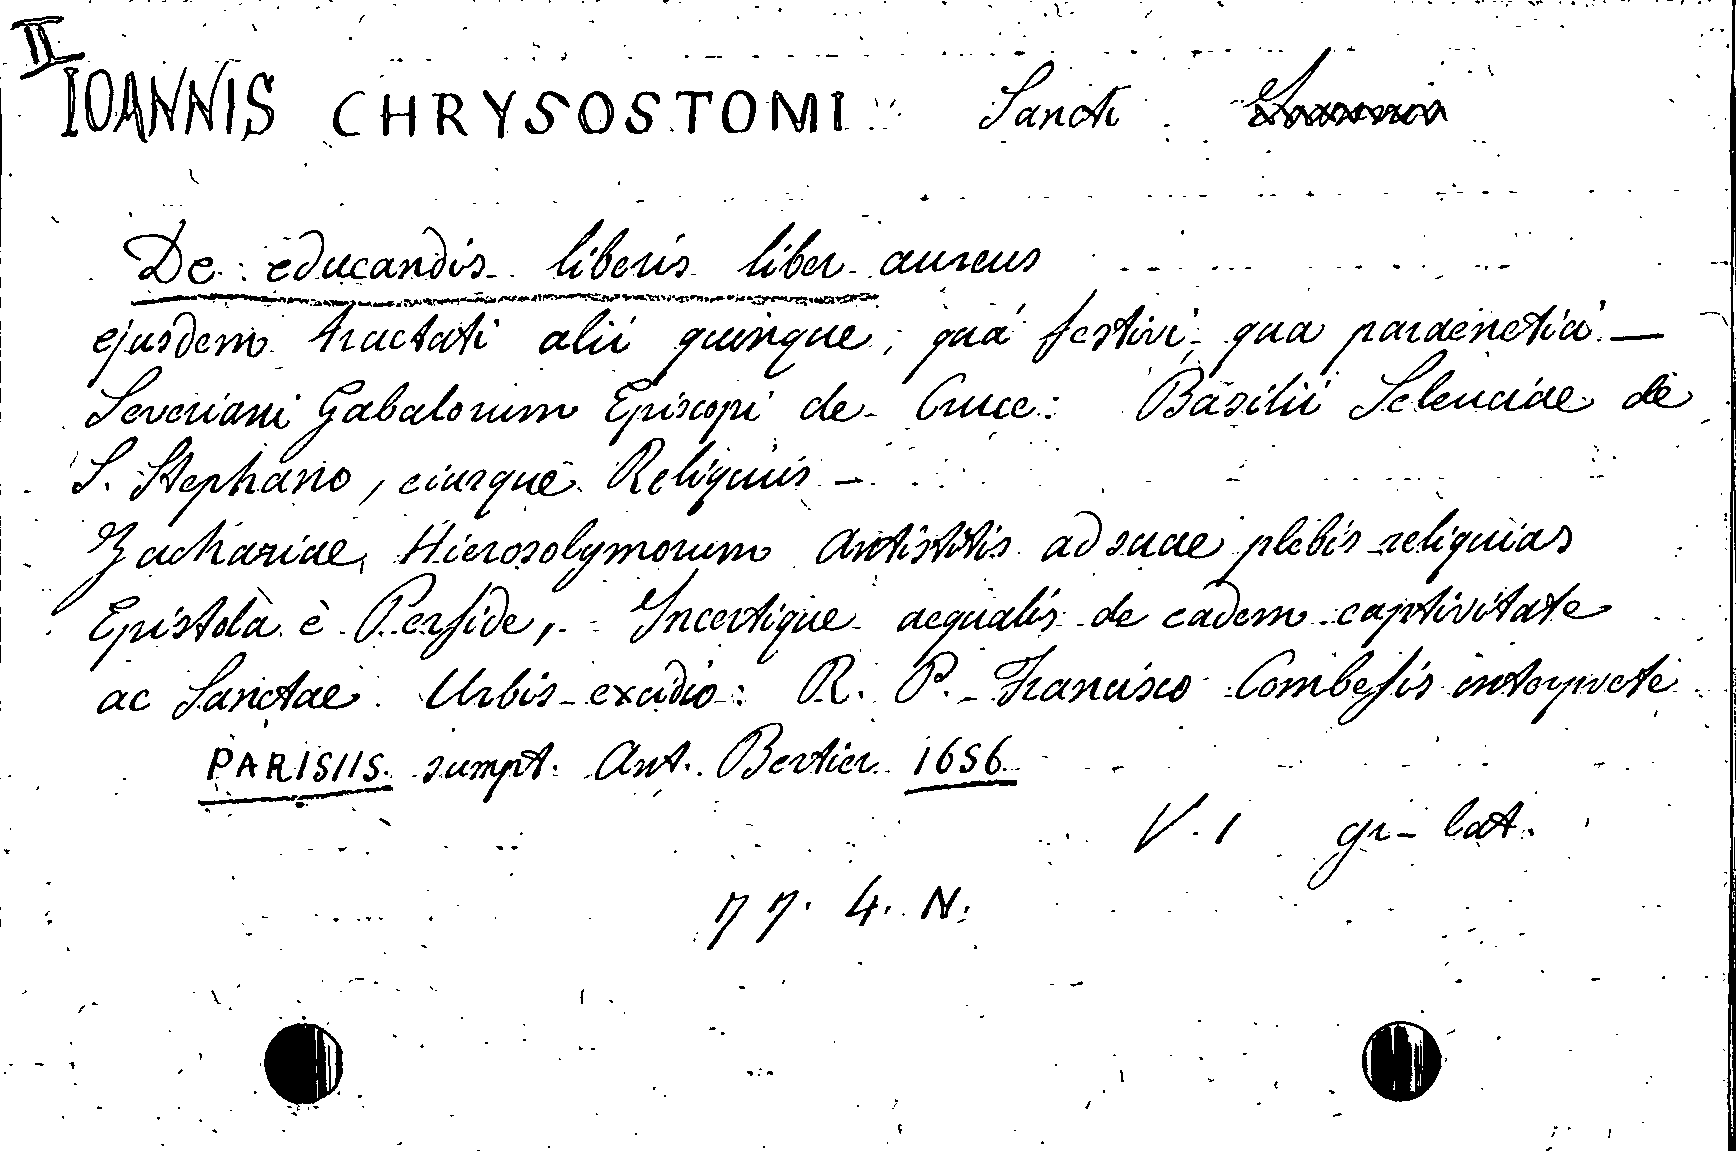 II
IOANNIS CHRYSOSTOMI Sancti
De educandis liberis liber aureus
ejusdem tractati alii quinque, quá festivi, qua paraenetici —
Severiani Gabalorum Episcopi de Cruce: Basilii Seleuciae de
S. Stephano, eiusque Reliquiis —
Zachariae, Hierosolymorum Antistitis ad suae plebis reliquias
Epistola è Perside, Incertique aequalis de eadem captivitate
ac Sanctae Urbis excidio: R. P. Francisco Combefis interprete
PARISIIS. sumpt. Ant. Bertier 1656
V. 1 gr-lat.
77. 4. N.